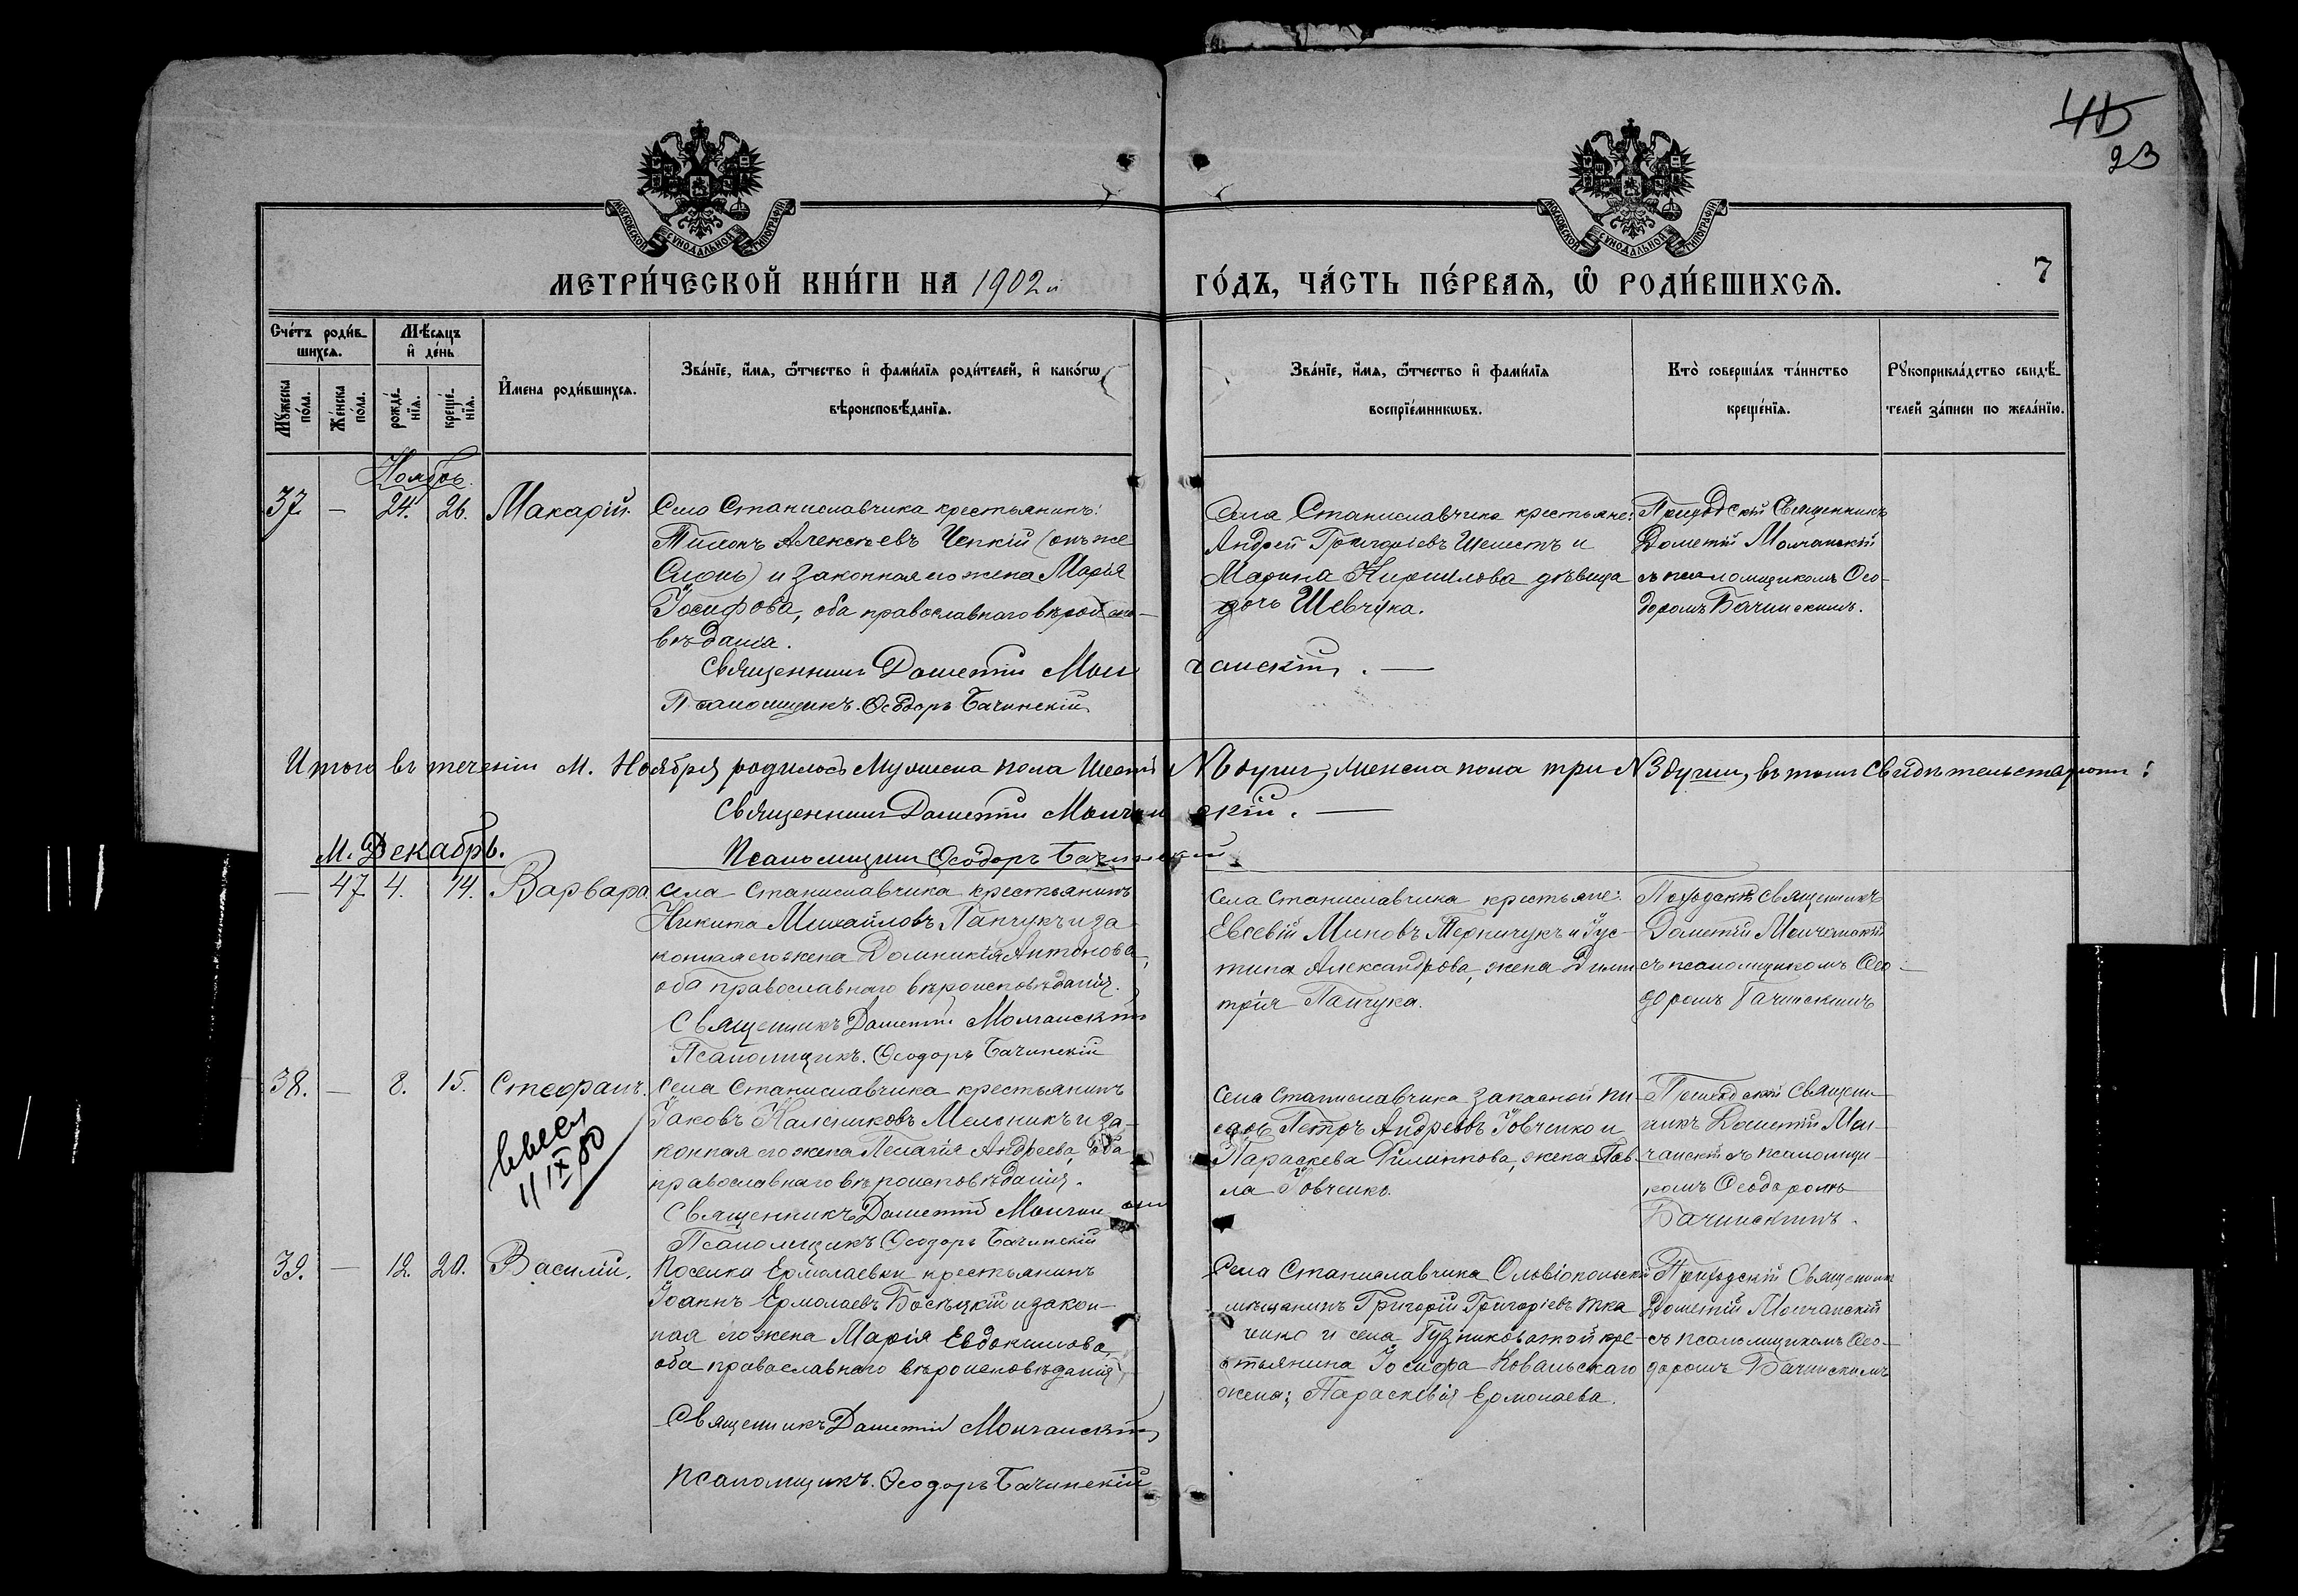 45
23
МОСКОВСКОЙ СѴНОДАЛЬНОЙ ТИПОГРАФІИ
МОСКОВСКОЙ СѴНОДАЛЬНОЙ ТИПОГРАФІИ
МЕТРИ́ЧЕСКОЙ КНИ́ГИ НА 1902й ГО́ДЪ, ЧА́СТЬ ПЕ́РВАѦ, Ѽ РОДИ́ВШИХСѦ.
7
Сче́тъ роди́в-
шихсѧ.
Мꙋ́жеска
по́ла.
Же́нска
пола.
Мѣ́сѧцъ
и҆ де́нь
рожде́-
нїѧ.
креще́-
нїѧ.
И҆мена роди́вшихсѧ.
Зва́нїе, и҆́мѧ, ѻ҆́тчество и҆ фами́лїѧ роди́телей, и҆ како́гѡ
вѣроисповѣ́данїѧ.
Зва́нїе, и҆́мѧ, ѻ҆́тчество и҆ фами́лїѧ
воспрїе́мникѡвъ.
Кто̀ соверша́лъ та́инство
креще́нїѧ.
Рꙋкоприкла́дство свидѣ́-
телей за́писи по жела́нїю.
Ноябрь.
37 — 24. 26. Макарій.
Села Станиславчика крестьянинъ:
Тимонъ Алексѣевъ Чепкій (онъ же
Слонь) и законная его жена Марія
Іосифова, оба православнаго вѣроиспо-
вѣданія.
Священникъ Дометій Молчанскій. —
Псаломщикъ. Ѳеодоръ Бачинскій
Села Станиславчика крестьяне:
Андрей Григоріевъ Шелестъ и
Марина Кирилова дѣвица
дочь Шевчука.
Приходскій Священникъ
Дометій Молчанскій
съ псаломщикомъ Ѳео-
доромъ Бачинскимъ.
Итого въ теченіи М. Ноября родилось Мужеска пола Шесть №6 душъ, Женска пола три №3 души, въ томъ Свидѣтельствуютъ:
Священникъ Дометій Молчанскій. —
Псаломщикъ Ѳеодоръ Бачинскій
М. Декабрь.
— 47 4. 14. Варвара
села Станиславчика крестьянинъ
Никита Михайловъ Панчукъ и за
конная его жена Домникія Антонова,
оба православнаго вѣроисповѣданія.
Священникъ Дометій Молчанскій
Псаломщикъ. Ѳеодоръ Бачинскій
Села Станиславчика крестьяне:
Евсевій Миновъ Терничукъ и Іус-
тина Александрова, жена Дими
трія Панчука.
Приходскій Священникъ
Дометій Молчанскій
съ псаломщикомъ Ѳео-
доромъ Бачинскимъ
38. — 8. 15. Стефанъ.
11 IX 80
Села Станиславчика крестьянинъ
Іаковъ Калениковъ Мельникъ и за-
конная его жена Пелагія Андреева, оба
православнаго вѣроисповѣданія.
Священникъ Дометій Молчанскій
Псаломщикъ Ѳеодоръ Бачинскій
Села Станиславчика запасной пи-
сарь Петръ Андреевъ Іовченко и
Параскева Филиппова, жена Пав-
ла Іовченко.
Приходскій Священ-
никъ Дометій Мол-
чанскій съ псаломщи-
комъ Ѳеодоромъ
Бачинскимъ.
39. — 12. 20. Василій.
Поселка Ермолаевки крестьянинъ
Іоаннъ Ермолаевъ Босѣцкій и закон-
ная его жена Марія Евдокимова,
оба православнаго вѣроисповѣданія
Священникъ Дометій Молчанскій
Псаломщикъ. Ѳеодоръ Бачинскій
Села Станиславчика Ольвіопольскій
мѣщанинъ Григорій Григоріевъ Тка
ченко и села кре-
стьянина Іосифа Ковальскаго
жена: Параскевія Ермолаева.
Приходскій Священникъ
Дометій Молчанскій
съ псаломщикомъ Ѳео-
доромъ Бачинскимъ